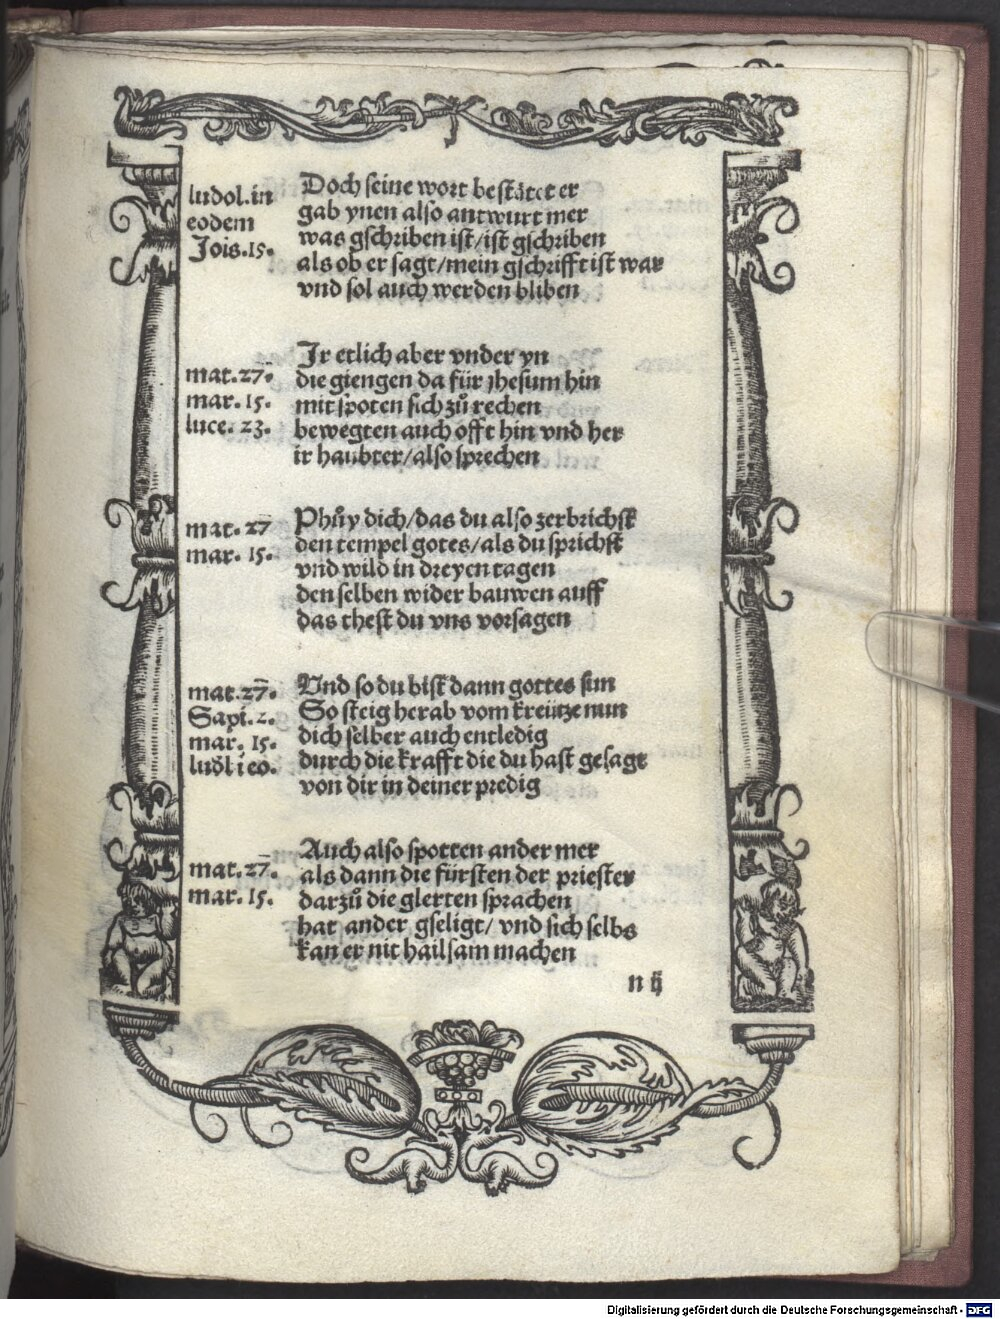 ludol.in
eodem
Jois.15.
Doch seine wort bestätet er
gab ynen also antwurt mer
was gschriben ist/ist gschriben
als ob er sagt/mein gschrifft ist war
vnd sol auch werden bliben
mat.27.
mar.15.
luce.23.
Jr etlich aber vnder yn
die giengen da für jhesum hin
mit spoten sich zů rechen
bewegten auch offt hin vnd her
ir haubter/also sprechen
mat.27
mar.15.
Phůy dich/das du also zerbrichst
den tempel gotes/als du sprichst
vnd wild in dreyen tagen
den selben wider bauwen auff
das thest du vns vorsagen
mat.27.
Sapi.2.
mar.15.
ludl i eo.
Vnd so du bist dann gottes sun
So steig herab vom kreütze nun
dich selber auch entledig
durch die krafft die du hast gesagt
von dir in deiner predig
mat.27.
mar.15.
Auch also spotten ander mer
als dann die fürsten der priester
darzů die glerten sprachen
hat ander gseligt/vnd sich selbs
kan er nit hailsam machen
n ij
Digitalisierung gefördert durch die Deutsche Forschungsgemeinschaft - DFG